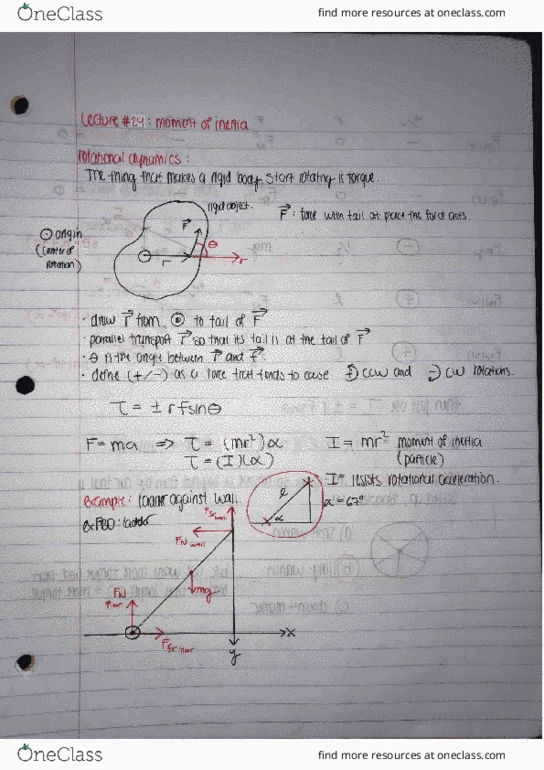 OneClass
find more resources at oneclass.com
Lecture #24: moment of inertia
rotational dynamics:
The thing that makes a rigid body start rotating is Torque.
rigid object.
F : force with tail at place the force acts.
F
⊙ origin
(center of
rotation)
θ
r
r
· draw r from ⊙ to tail of F
· parallel transport r so that its tail is at the tail of F
· θ is the angle between r and F.
· define (+/-) as a force that tends to cause + ccw and - cw rotations.
τ = ± rFsinθ
F=ma => τ = (mr²)α I = mr² moment of inertia
τ = (I)(α) (particle)
-I= resists rotational acceleration.
example: ladder against wall.
l
α = 67°
α
FBD: ladder
Ffr wall
FN wall
mg
FN
floor
Ffr floor
x
y
OneClass
find more resources at oneclass.com